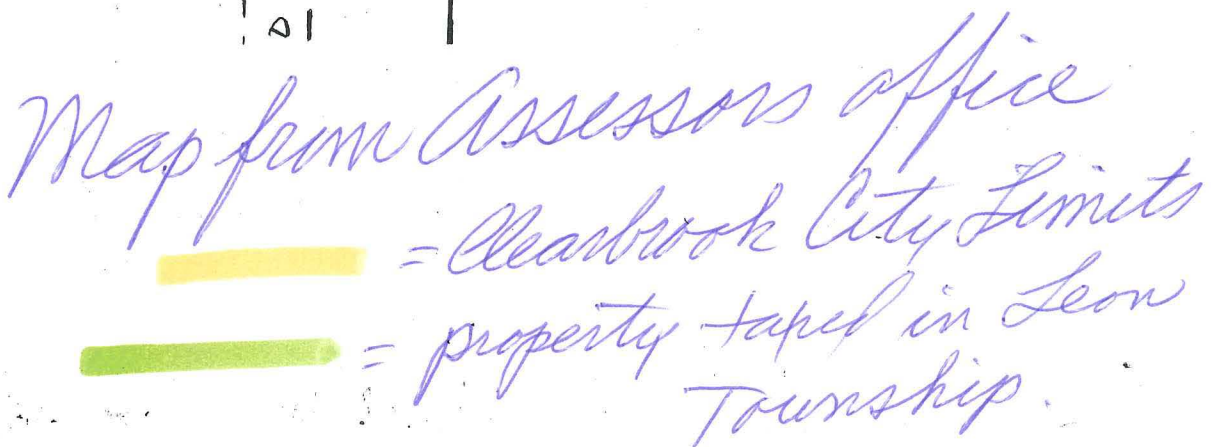 Map from Assessors office
= Clearbrook City Limits
= property taxed in Leon
Township.